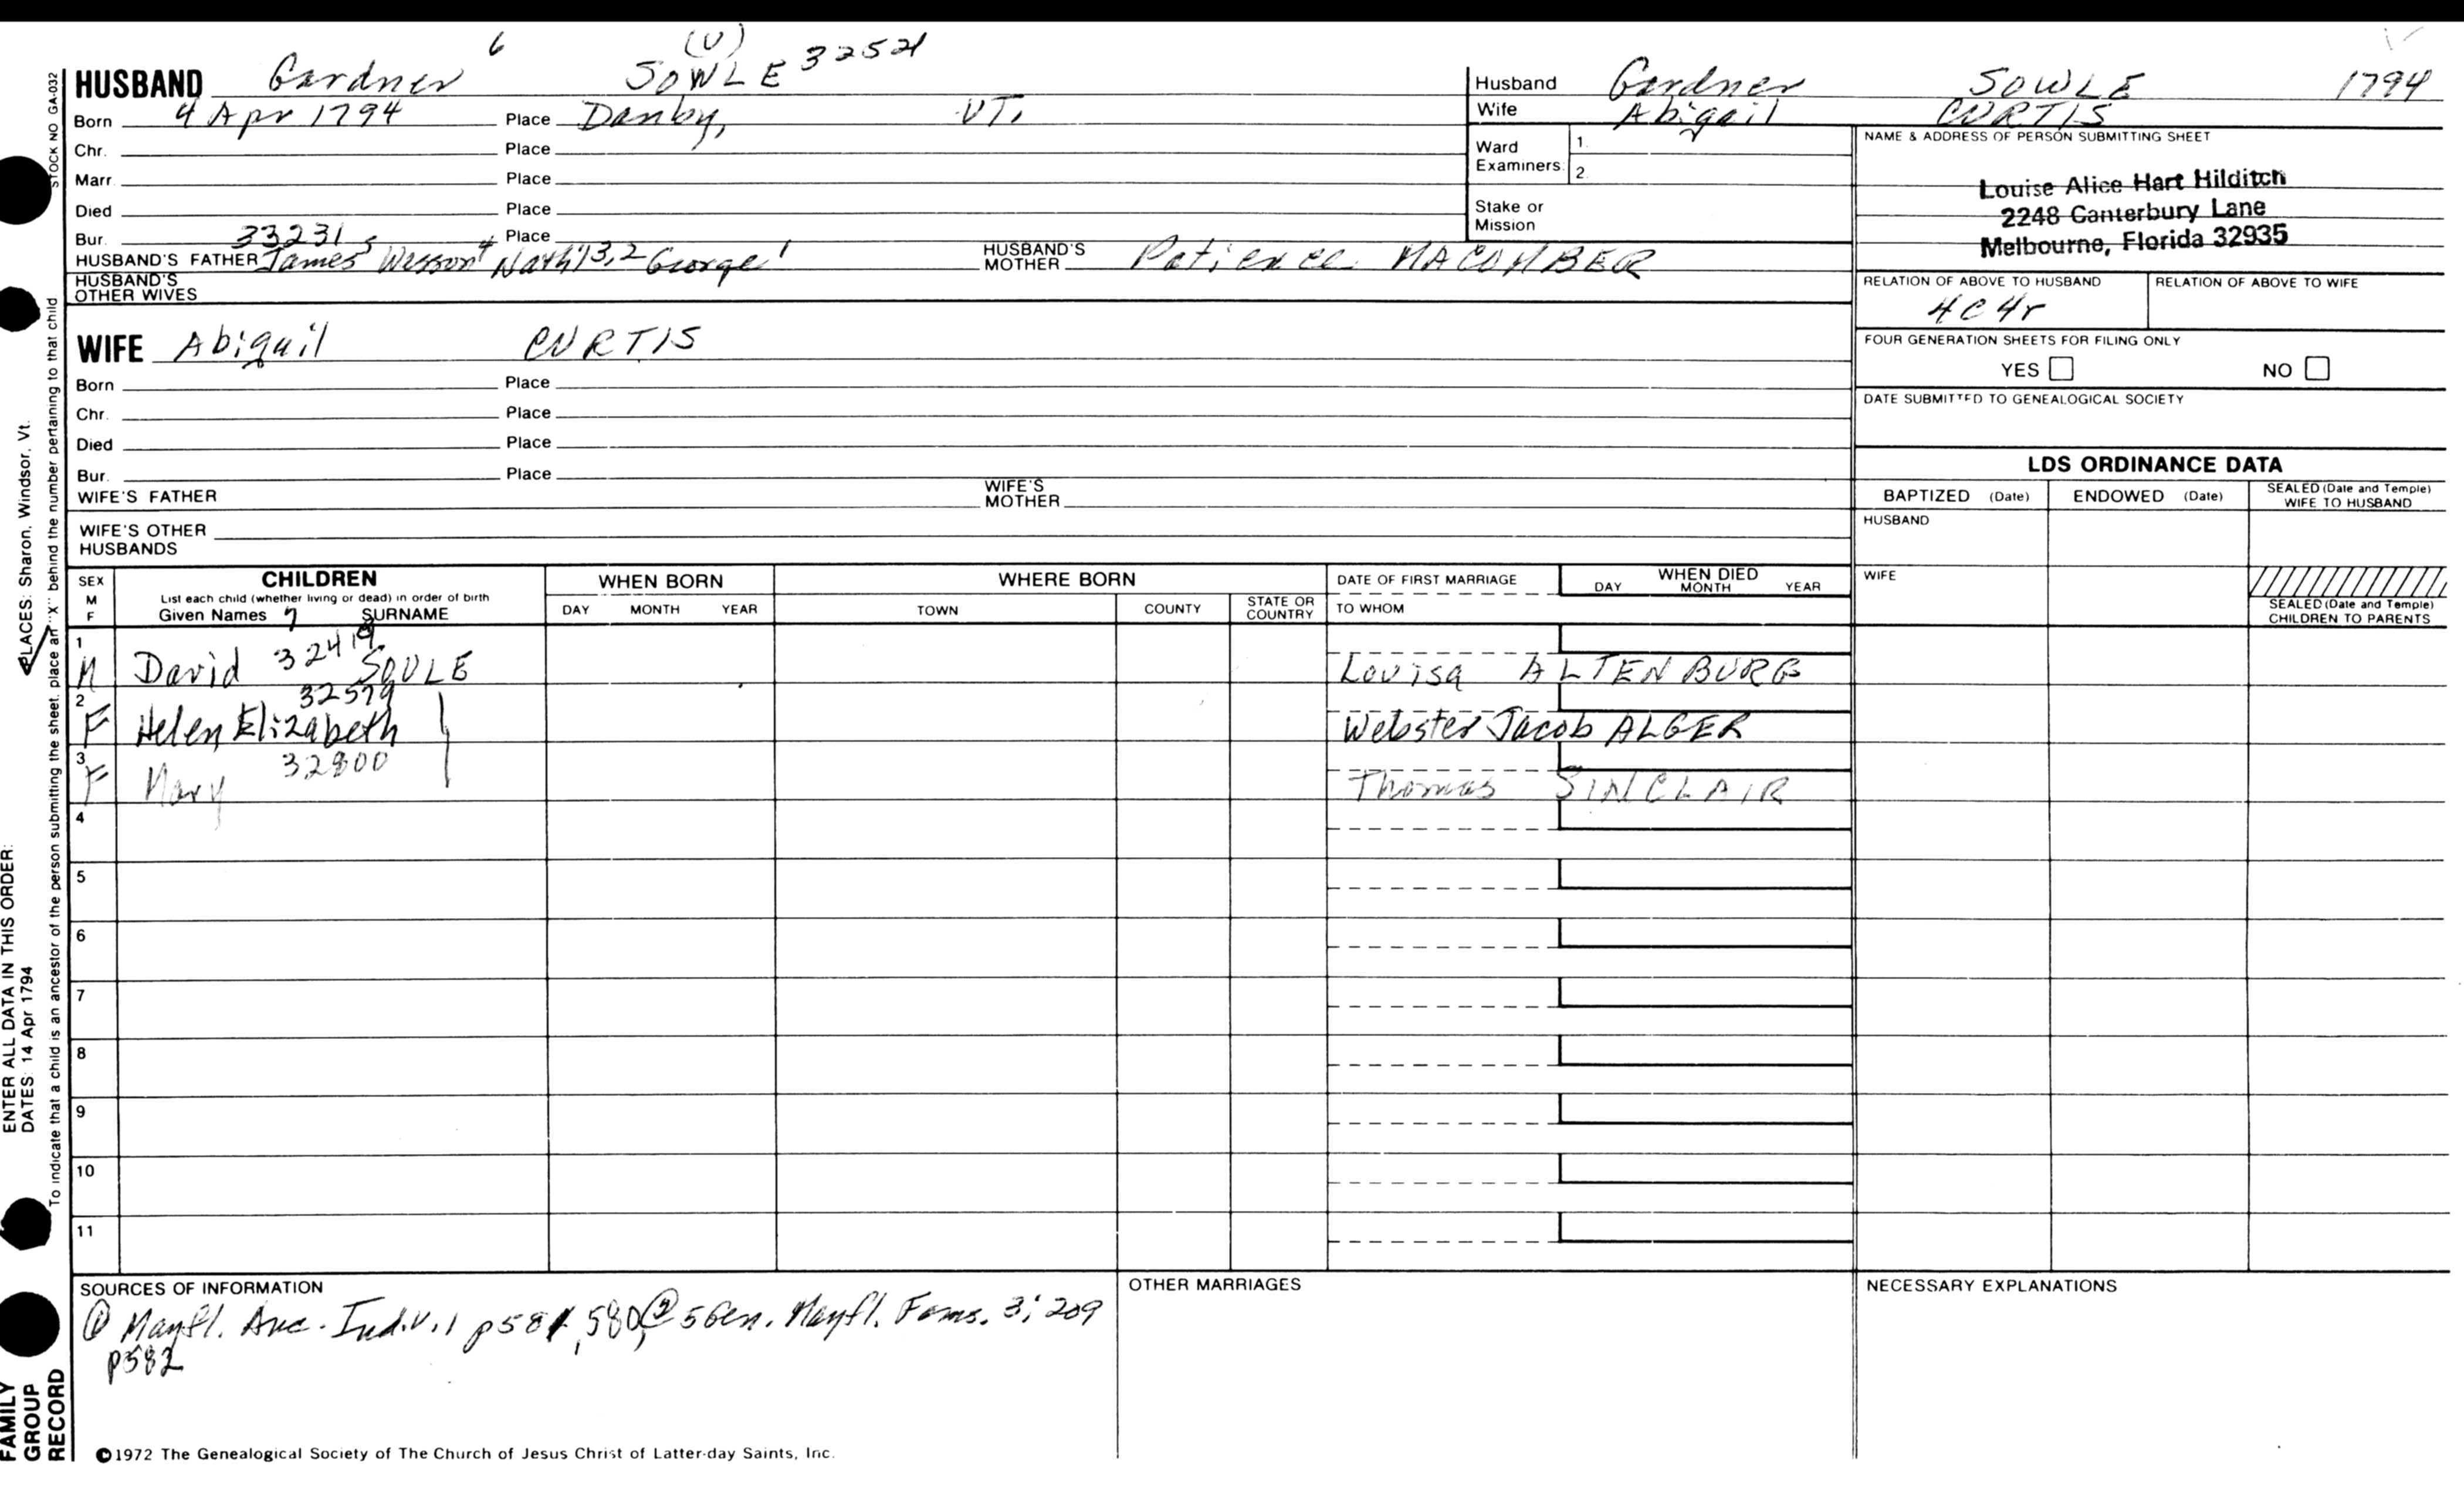 HUSBAND Gardner 6 (U) SOWLE 32521
Born 4 Apr 1794 Place Danby, VT.
Chr. Place
Marr. Place
Died Place
Bur. 33231 Place
HUSBAND'S FATHER James 5 Wesson 4 Nath'l 3,2 George 1 HUSBAND'S MOTHER Patience MACOMBER
HUSBAND'S OTHER WIVES
WIFE Abigail CURTIS
Born Place
Chr. Place
Died Place
Bur. Place
WIFE'S FATHER WIFE'S MOTHER
WIFE'S OTHER HUSBANDS
Husband Gardner SOWLE 1794
Wife Abigail CURTIS
Ward Examiners: 1. 2.
Stake or Mission
NAME & ADDRESS OF PERSON SUBMITTING SHEET
Louise Alice Hart Hilditch
2248 Canterbury Lane
Melbourne, Florida 32935
RELATION OF ABOVE TO HUSBAND RELATION OF ABOVE TO WIFE
4C4r
FOUR GENERATION SHEETS FOR FILING ONLY
YES NO
DATE SUBMITTED TO GENEALOGICAL SOCIETY
LDS ORDINANCE DATA
BAPTIZED (Date) ENDOWED (Date) SEALED (Date and Temple) WIFE TO HUSBAND
HUSBAND
WIFE
SEALED (Date and Temple) CHILDREN TO PARENTS
SEX M F CHILDREN WHEN BORN WHERE BORN DATE OF FIRST MARRIAGE WHEN DIED
List each child (whether living or dead) in order of birth
Given Names 7 SURNAME DAY MONTH YEAR TOWN COUNTY STATE OR COUNTRY TO WHOM DAY MONTH YEAR
1 M David SOULE Louisa ALTENBURG
2 F Helen Elizabeth 32579 Webster Jacob ALGER
3 F Mary 32800 Thomas SINCLAIR
4
5
6
7
8
9
10
11
SOURCES OF INFORMATION OTHER MARRIAGES NECESSARY EXPLANATIONS
① Mayfl. Anc. Ind. v. 1 p581, 580, ② 5 Gen. Mayfl. Fams. 3; 209
p582
©1972 The Genealogical Society of The Church of Jesus Christ of Latter-day Saints, Inc.
STOCK NO GA-032
To indicate that a child is an ancestor of the person submitting the sheet, place an "X" behind the number pertaining to that child
ENTER ALL DATA IN THIS ORDER:
DATES: 14 Apr 1794
PLACES: Sharon, Windsor, Vt.
FAMILY GROUP RECORD